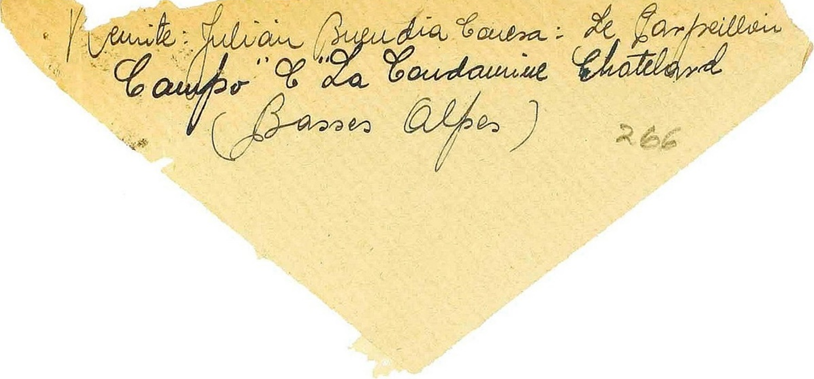 Remite: Julián Buendia Conesa: Le Parpeillon
Campo "C" La Condamine Chatelard
(Basses Alpes)
266